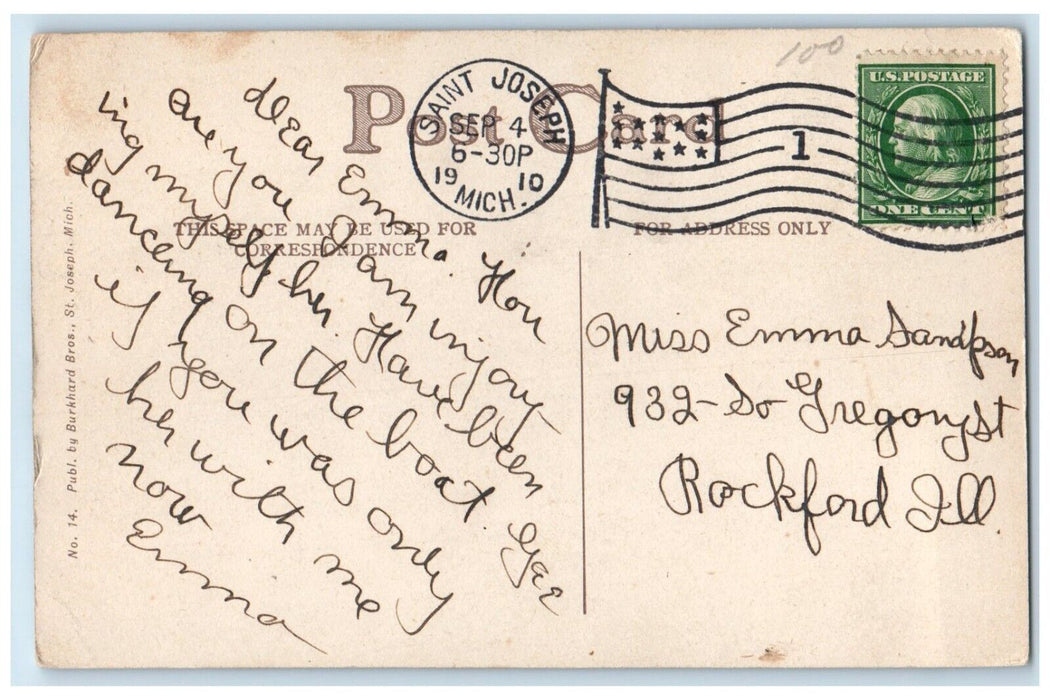 100
Post Card
SAINT JOSEPH
SEP 4
6-30P
19 10
MICH.
1
U.S. POSTAGE
ONE CENT
THIS SPACE MAY BE USED FOR
CORRESPONDENCE
FOR ADDRESS ONLY
Dear Emma. How
are you I am injoy
ing myself her. Have been
dancing on the boat. Gee
if you was only
her with me
now
Emma
Miss Emma Sandpson
932- So Gregory St
Rockford Ill.
No. 14. Publ. by Burkhard Bros., St. Joseph, Mich.